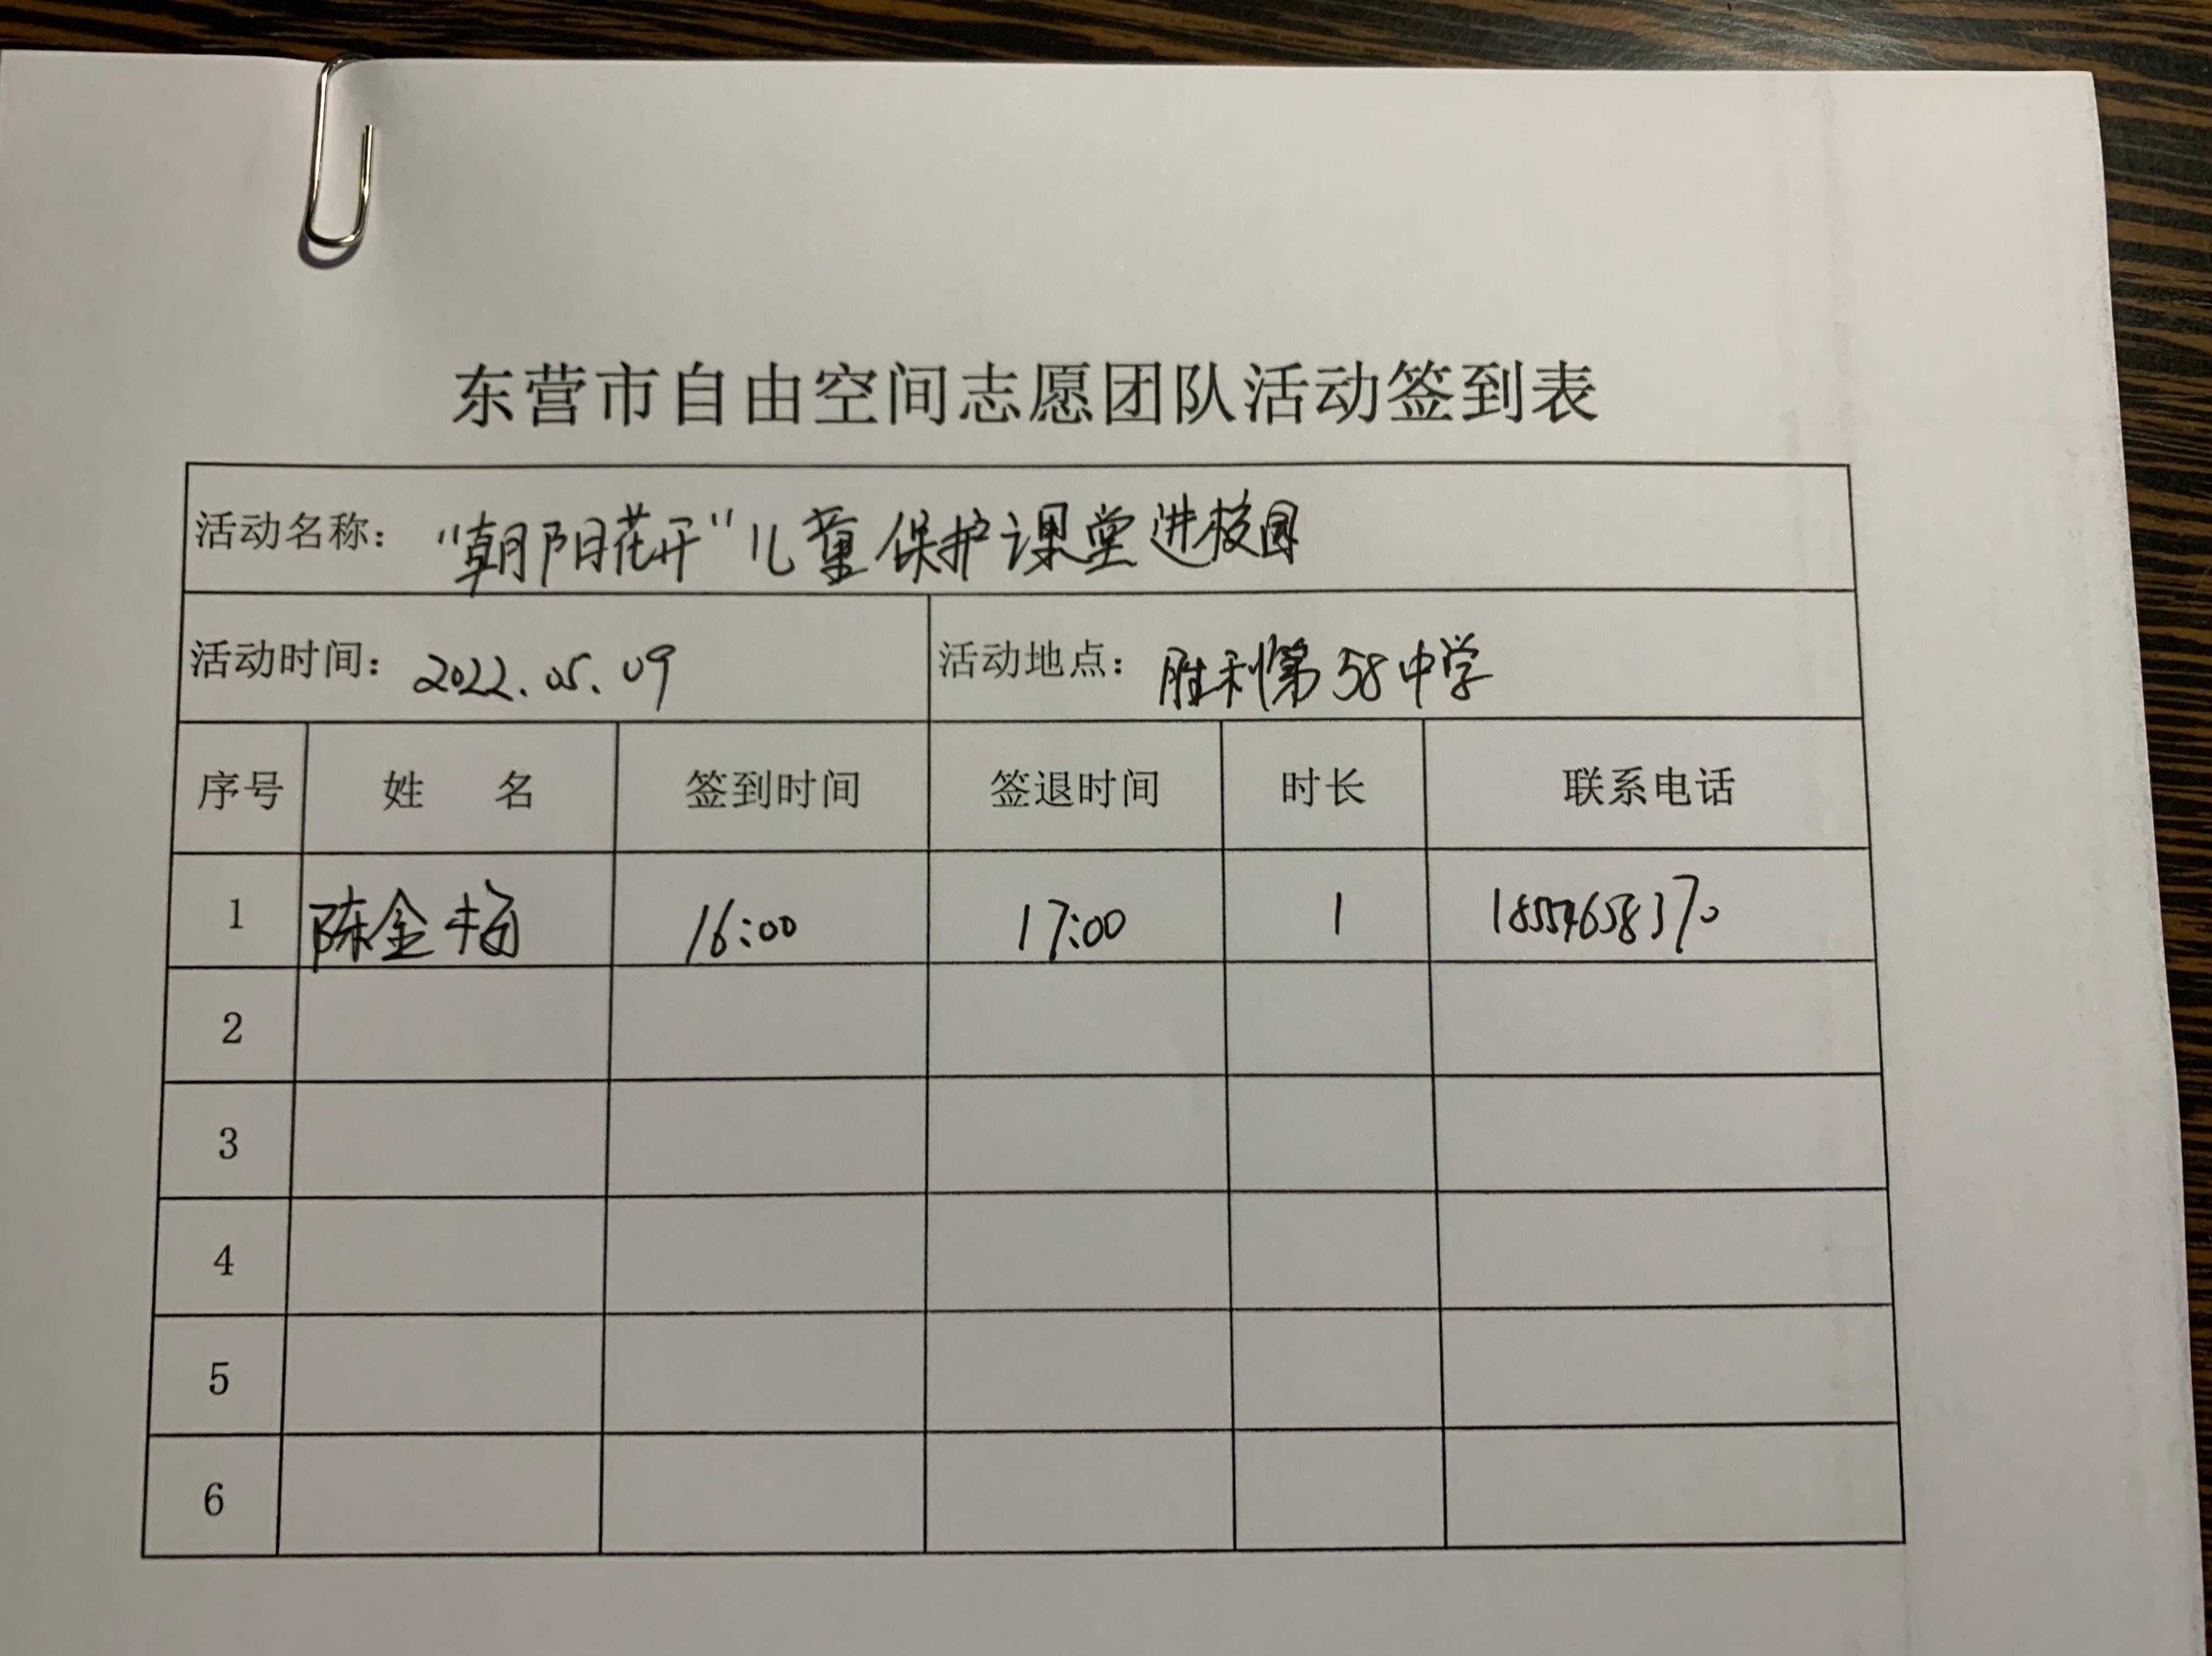 东营市自由空间志愿团队活动签到表
活动名称：“朝阳花开”儿童保护课堂进校园
活动时间：2022.05.09 活动地点：胜利第58中学
序号 姓 名 签到时间 签退时间 时长 联系电话
1 陈金梅 16:00 17:00 1 18554658370
2
3
4
5
6